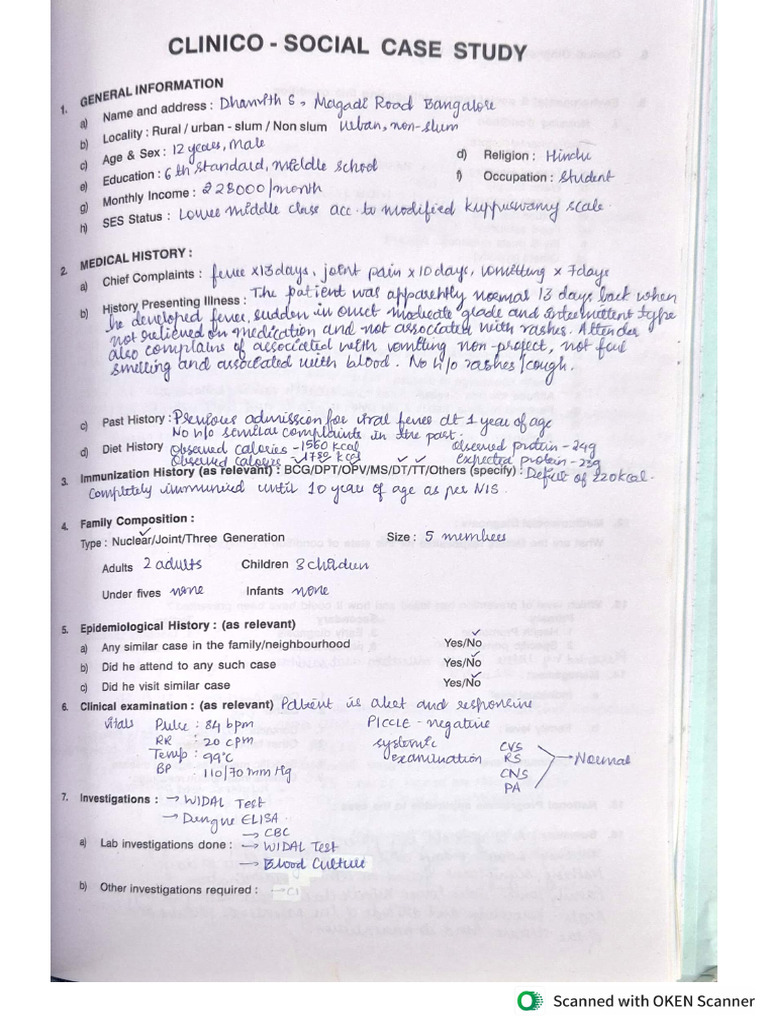 CLINICO - SOCIAL CASE STUDY
1. GENERAL INFORMATION
a) Name and address : Dhanvith S, Magadi Road Bangalore
b) Locality : Rural / urban - slum / Non slum Urban, non-slum
c) Age & Sex : 12 years, Male
d) Religion : Hindu
e) Education : 6th standard, middle school
f) Occupation : Student
g) Monthly Income : ₹28000/month
h) SES Status : Lower middle class acc. to modified kuppuswamy scale.
2. MEDICAL HISTORY :
a) Chief Complaints : fever x13days, joint pain x 10 days, vomitting x 7days
b) History Presenting Illness : The patient was apparently normal 13 days back when
he developed fever, sudden in onset moderate grade and intermittent type
not relieved on medication and not associated with rashes. Attender
also complains of associated with vomitting non-project, not foul
smelling and associated with blood. No h/o rashes/cough.
c) Past History : Previous admission for viral fever at 1 year of age
No h/o similar complaints in the past.
d) Diet History Observed calories - 1560 kcal Observed protein - 24g
Observed calories - 1780 kcal Expected protein - 23g
3. Immunization History (as relevant) : BCG/DPT/OPV/MS/DT/TT/Others (specify) : Deficit of 220kcal.
Completely immunized until 10 years of age as per NIS.
4. Family Composition :
Type : Nuclear/Joint/Three Generation Size : 5 members
Adults 2 adults Children 3 children
Under fives none Infants none
5. Epidemiological History : (as relevant)
a) Any similar case in the family/neighbourhood Yes/No
b) Did he attend to any such case Yes/No
c) Did he visit similar case Yes/No
6. Clinical examination : (as relevant) Patient is alert and responsive
vitals Pulse : 84 bpm PICCLE - negative
RR : 20 cpm systemic CVS
Temp : 99°C examination RS
BP 110/70 mm Hg CNS → Normal
PA
7. Investigations : → WIDAL Test
→ Dengue ELISA.
→ CBC
a) Lab investigations done : → WIDAL Test
→ Blood Culture
b) Other investigations required :
Scanned with OKEN Scanner